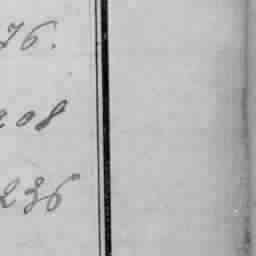 76.
208
236